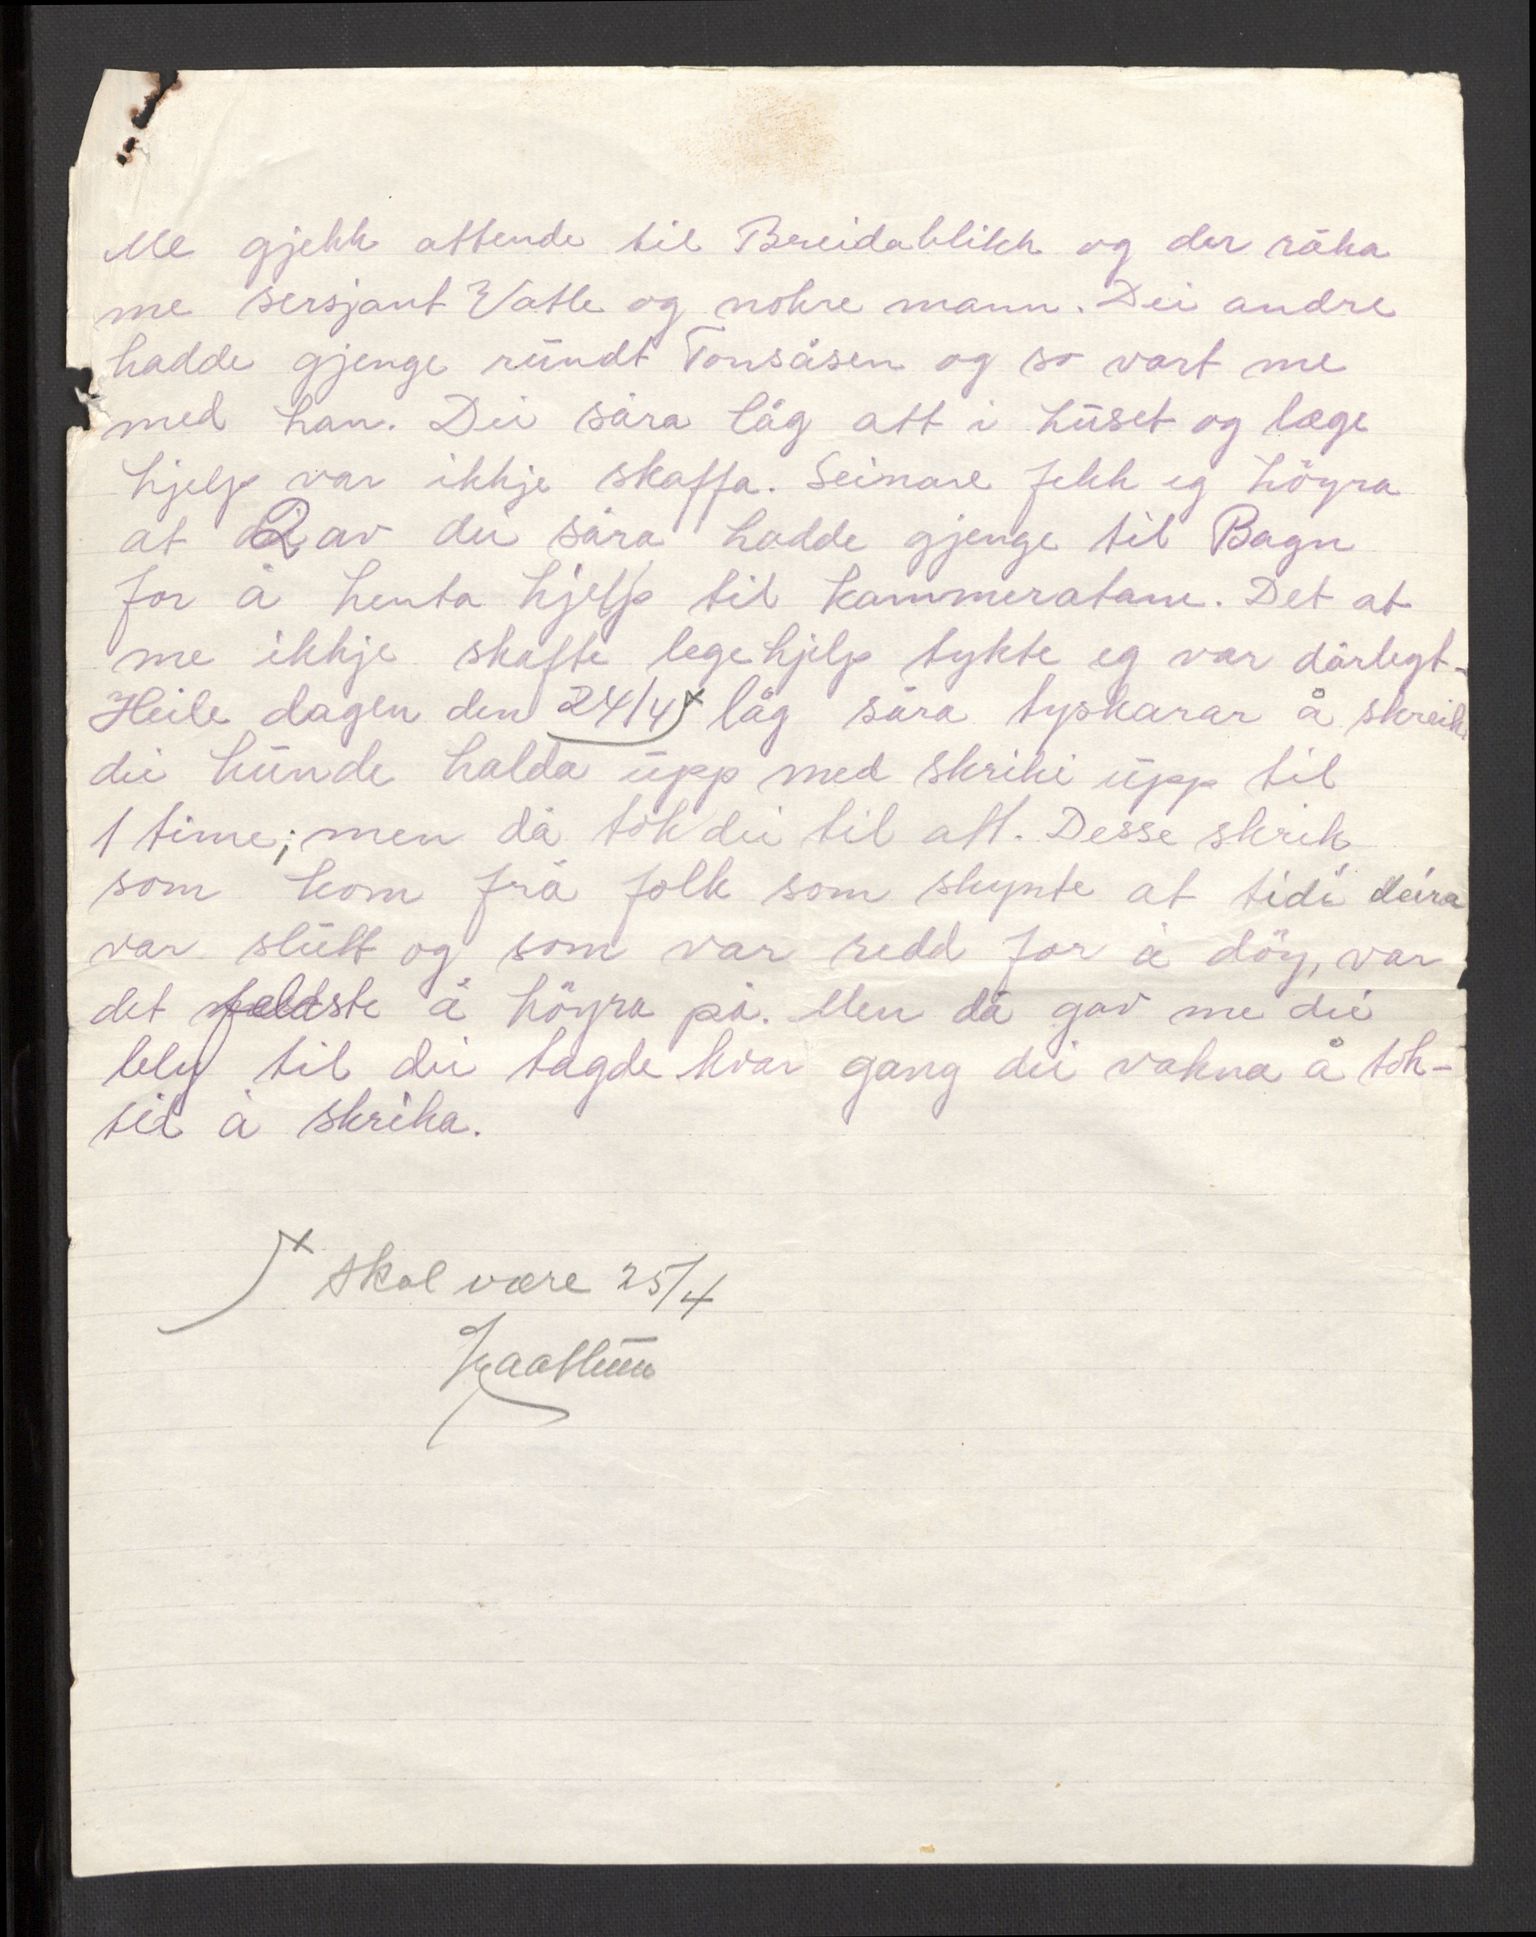 Me gjekk attende til Breidablikk og der råka
me sersjant Vatle og nokre mann. Dei andre
hadde gjenge rundt Tonsåsen og so vart me
med han. Dei såra låg att i huset og læge
hjelp var ikkje skaffa. Seinare fekk eg höyra
at 2 av dei såra hadde gjenge til Bagn
for å henta hjelp til kammeratane. Det at
me ikkje skafte legehjelp tykte eg var dårlegt.
Heile dagen den 24/4 x låg såra tyskarar å skreik
dei kunde halda upp med skriki upp til
1 time; men då tok dei til att. Desse skrik
som kom frå folk som skynte at tidi deira
var slutt og som var redd for å döy, var
det fælaste å höyra på. Men då gav me dei
bly til dei tagde kvar gang dei vakna å tok-
til å skrika.
x skal være 25/4